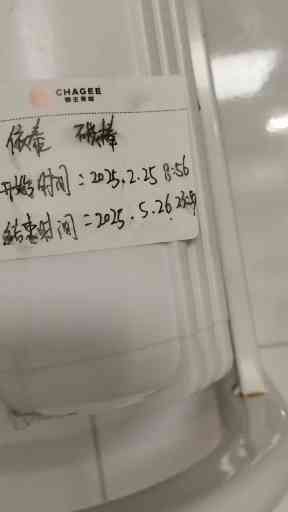 CHAGEE
霸王茶姬
开始时间：2025.2.25 8:56
结束时间：2025.5.26 23:59